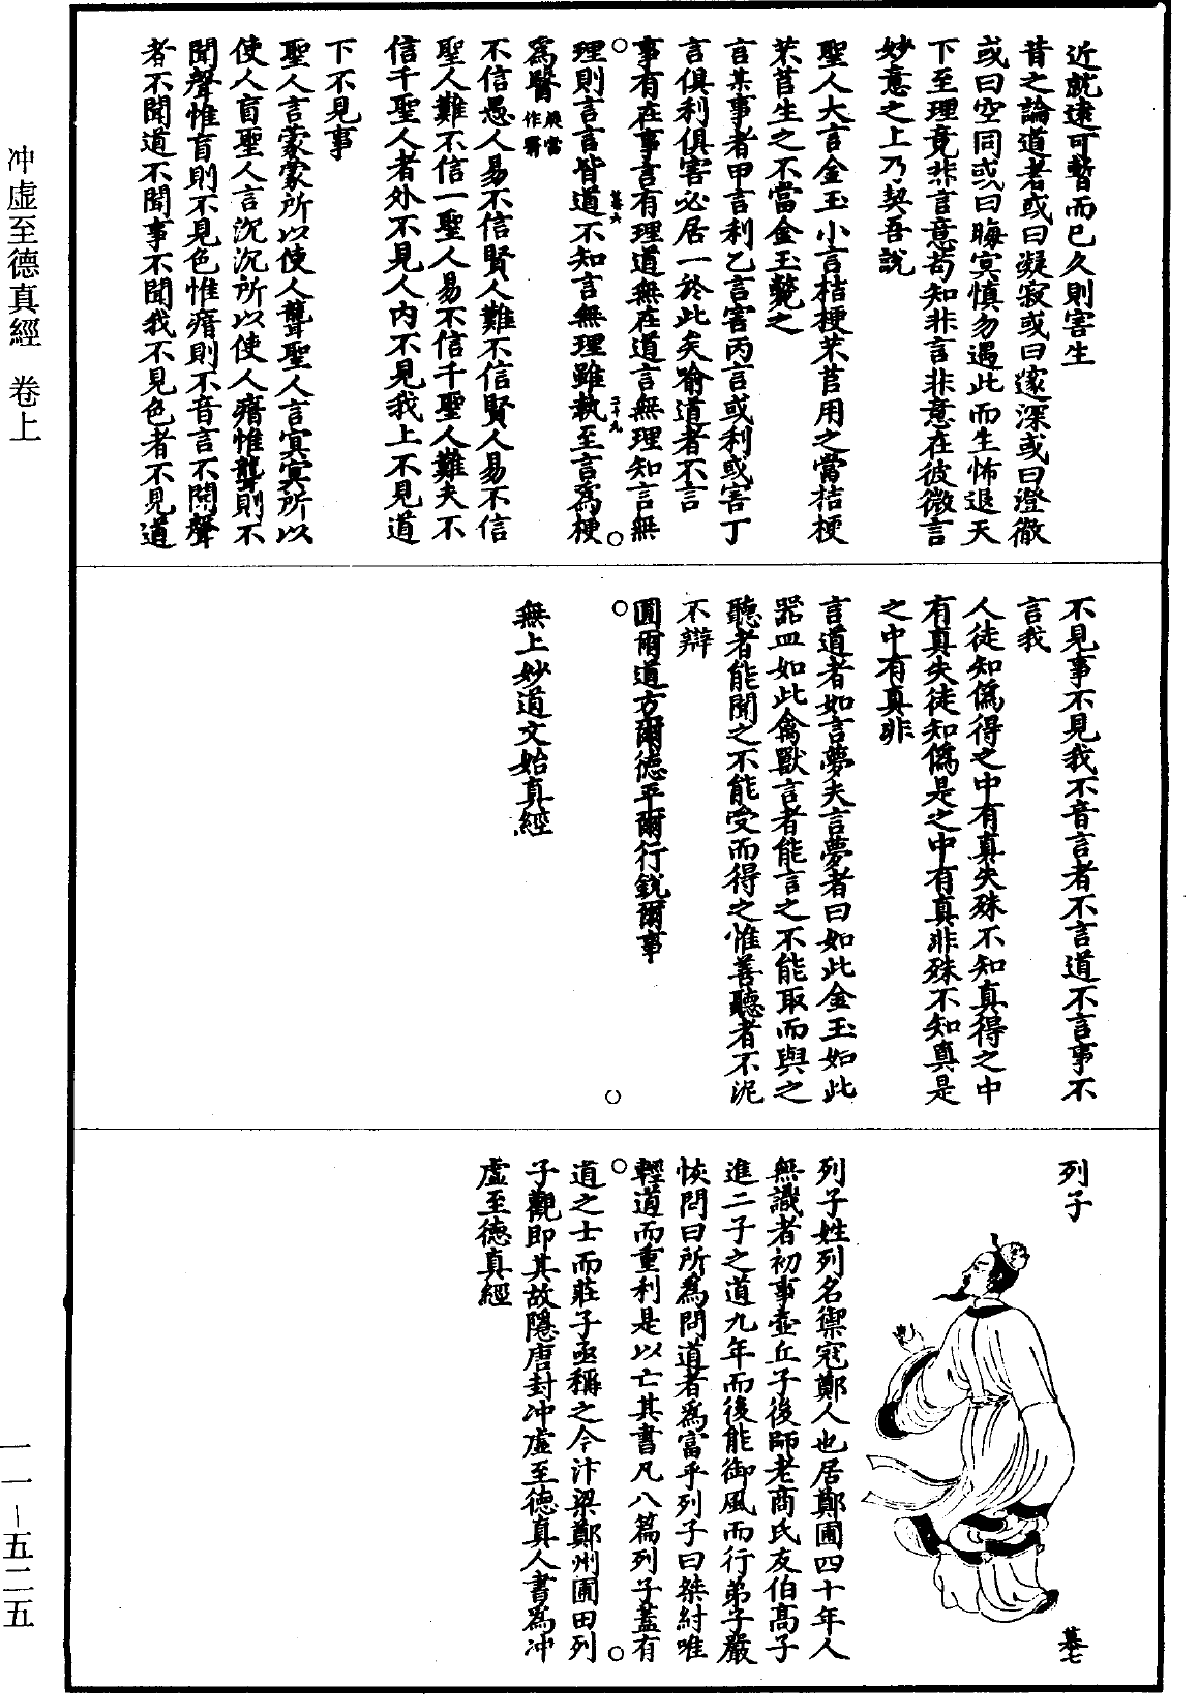 近就遠可暫而已久則害生
昔之論道者或曰凝寂或曰邃深或曰澄徹
或曰空同或曰晦冥慎勿遇此而生怖退天
下至理竟非言意苟知非言非意在彼微言
妙意之上乃契吾說
聖人大言金玉小言桔梗芣苢用之當桔梗
芣苢生之不當金玉斃之
言某事者甲言利乙言害丙言或利或害丁
言俱利俱害必居一於此矣喻道者不言
事有在事言有理道無在道言無理知言無
理則言言皆道不知言無理雖執至言為梗
為醫
不信愚人易不信賢人難不信賢人易不信
聖人難不信一聖人易不信千聖人難夫不
信千聖人者外不見人內不見我上不見道
下不見事
聖人言蒙蒙所以使人聾聖人言冥冥所以
使人盲聖人言沉沉所以使人瘖惟聾則不
聞聲惟盲則不見色惟瘖則不音言不聞聲
者不聞道不聞事不聞我不見色者不見道
不見事不見我不音言者不言道不言事不
言我
人徒知偽得之中有真失殊不知真得之中
有真失徒知偽是之中有真非殊不知真是
之中有真非
言道者如言夢夫言夢者曰如此金玉如此
器皿如此禽獸言者能言之不能取而與之
聽者能聞之不能受而得之惟善聽者不泥
不辯
圓爾道方爾德平爾行銳爾事
無上妙道文始真經
列子
列子姓列名禦寇鄭人也居鄭圃四十年人
無識者初事壺丘子後師老商氏友伯高子
進二子之道九年而後能御風而行弟子嚴
恢問曰所為問道者為富乎列子曰桀紂唯
輕道而重利是以亡其書凡八篇列子蓋有
道之士而莊子亟稱之今汴梁鄭州圃田列
子觀即其故隱唐封冲虛至德真人書為冲
虛至德真經
冲虛至德真經 卷上
一一-五二五